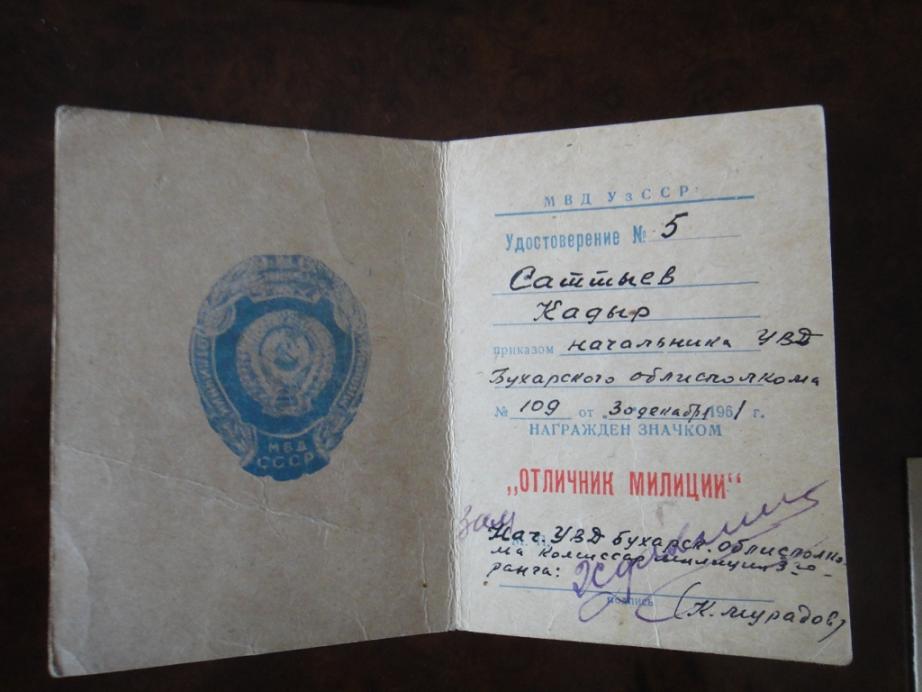 МВД
СССР
МВД УзССР
Удостоверение № 5
Саттыев
Кадыр
приказом начальника УВД
Бухарского облисполкома
№ 109 от „30 декабря 1961 г.
НАГРАЖДЕН ЗНАЧКОМ
„ОТЛИЧНИК МИЛИЦИИ“
зам
Нач. УВД Бухарск. облисполко-
ма комиссар милиции 3-го
ранга:
подпись
(К. Мурадов)